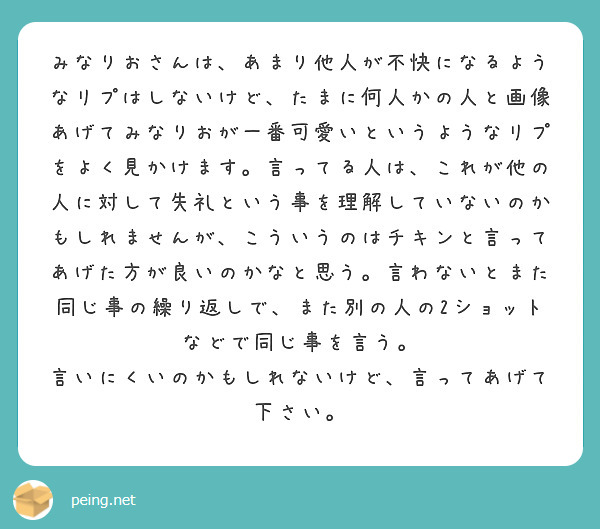 みなりおさんは、あまり他人が不快になるよう
なリプはしないけど、たまに何人かの人と画像
あげてみなりおが一番可愛いというようなリプ
をよく見かけます。言ってる人は、これが他の
人に対して失礼という事を理解していないのか
もしれませんが、こういうのはチキンと言って
あげた方が良いのかなと思う。言わないとまた
同じ事の繰り返しで、また別の人の2ショット
などで同じ事を言う。
言いにくいのかもしれないけど、言ってあげて
下さい。
peing.net